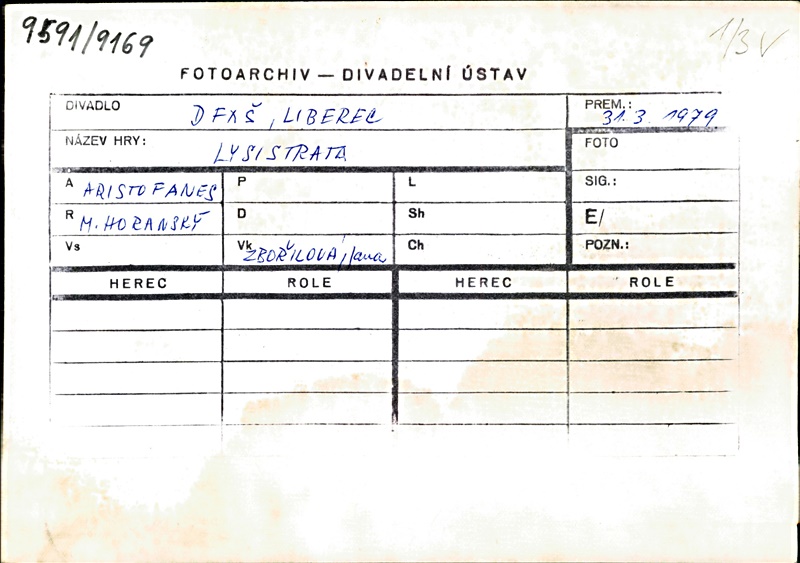 9591/9169
1/3 V
FOTOARCHIV — DIVADELNÍ ÚSTAV
DIVADLO DFXŠ, LIBEREC
PREM.: 31.3. 1979
NÁZEV HRY: LYSISTRATA
FOTO
A ARISTOFANES P L SIG.:
R M. HORANSKÝ D Sh E/
Vs Vk ZBOŘILOVÁ, Jana Ch POZN.:
HEREC ROLE HEREC ROLE